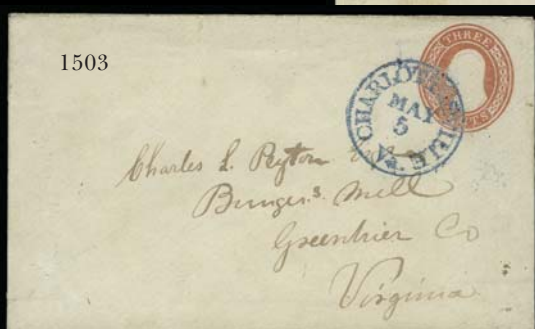 1503
THREE
CENTS
CHARLOTTESVILLE
MAY
5
VA.
Charles L. Peyton
Bunger's Mill
Greenbrier Co
Virginia